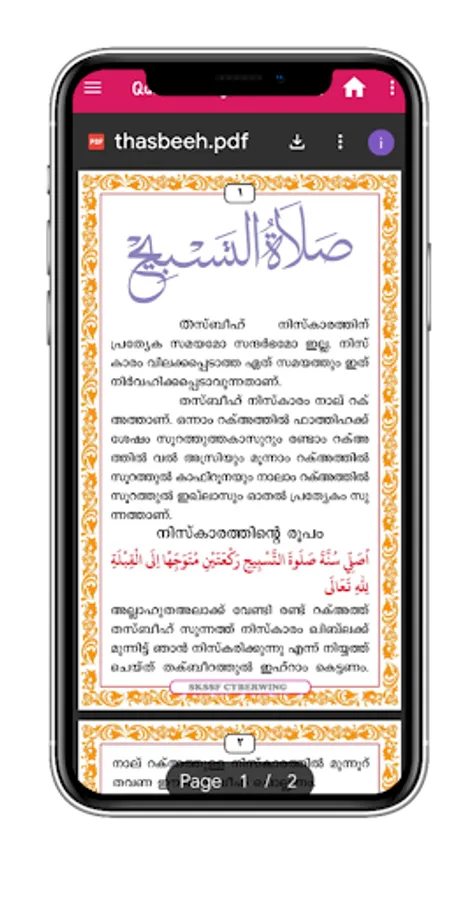 thasbeeh.pdf
١
صَلَاةُ التَّسْبِيحِ
തസ്ബീഹ് നിസ്കാരത്തിന്
പ്രത്യേക സമയമോ സന്ദർഭമോ ഇല്ല. നിസ്
കാരം വിലക്കപ്പെടാത്ത ഏത് സമയത്തും ഇത്
നിർവഹിക്കപ്പെടാവുന്നതാണ്.
തസ്ബീഹ് നിസ്കാരം നാല് റക്
അത്താണ്. ഒന്നാം റക്അത്തിൽ ഫാത്തിഹക്ക്
ശേഷം സൂറത്തുത്തകാസുറും രണ്ടാം റക്അ
ത്തിൽ വൽ അസ്രിയും മൂന്നാം റക്അത്തിൽ
സൂറത്തുൽ കാഫിറൂനയും നാലാം റക്അത്തിൽ
സൂറത്തുൽ ഇഖ്ലാസും ഓതൽ പ്രത്യേകം സു
ന്നത്താണ്.
നിസ്കാരത്തിന്റെ രൂപം
اُصَلِّي سُنَّةَ صَلٰوةَ التَّسْبِيحِ رَكْعَتَيْنِ مُتَوَجِّهًا اِلَى الْقِبْلَةِ
لِلّٰهِ تَعَالَى
അല്ലാഹുതആലാക്ക് വേണ്ടി രണ്ട് റക്അത്ത്
തസ്ബീഹ് സുന്നത്ത് നിസ്കാരം ഖിബ്‌ലക്ക്
മുന്നിട്ട് ഞാൻ നിസ്കരിക്കുന്നു എന്ന് നിയ്യത്ത്
ചെയ്ത് തക്ബീറത്തുൽ ഇഹ്റാം കെട്ടണം.
SKSSF CYBERWING
٢
നാല് നിസ്കാരത്തിൽ മുന്നൂറ്
തവണ
Page 1 / 2